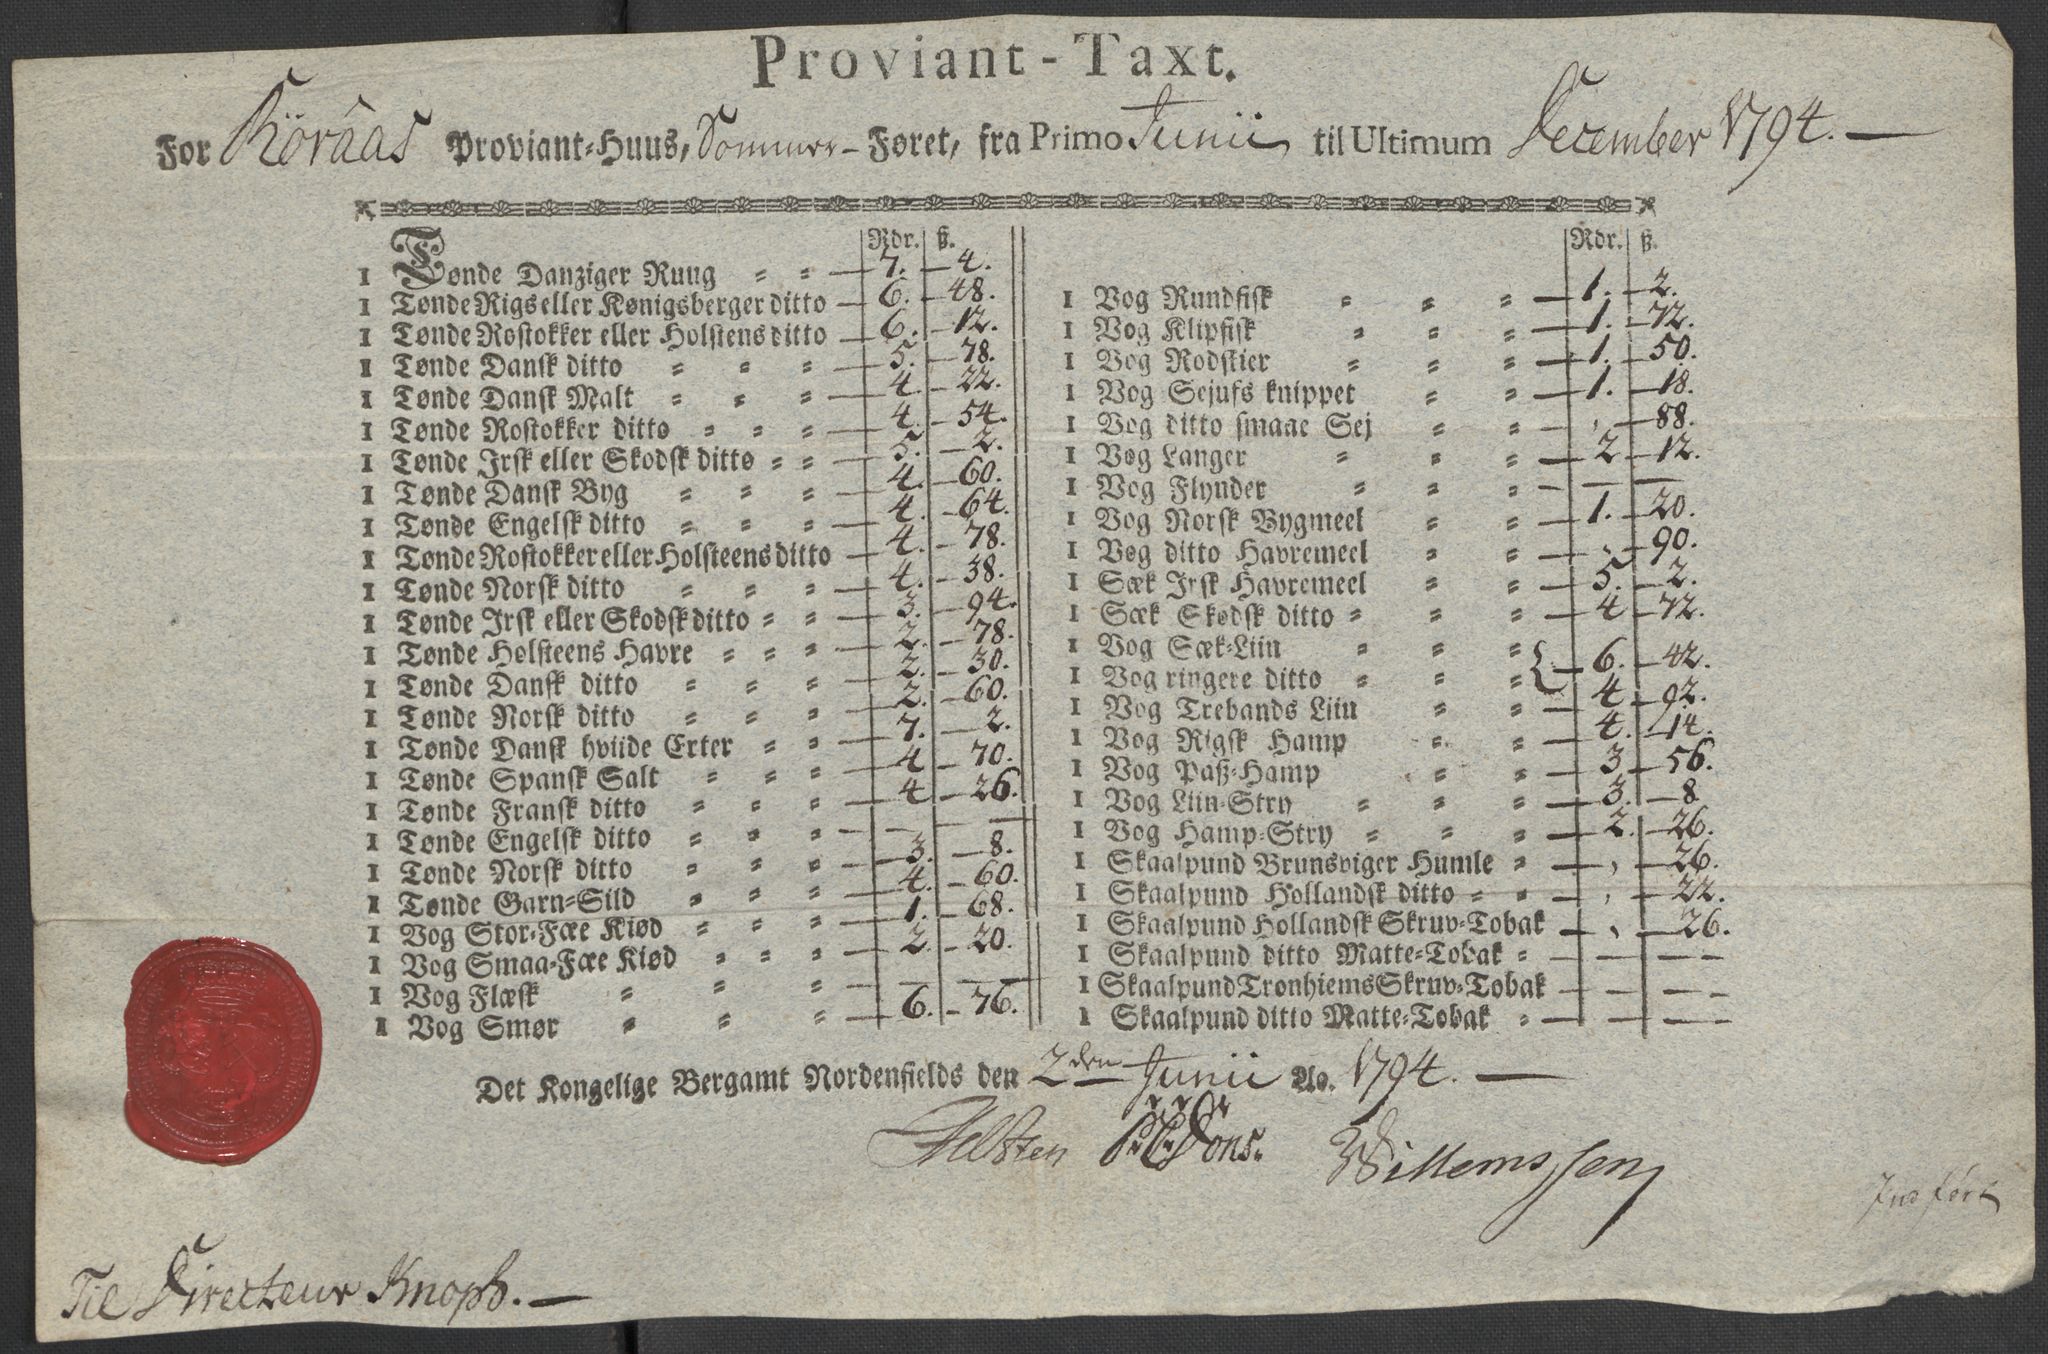 Proviant-Taxt.
For Röraas Proviant-Huus, Sommer-Føret, fra Primo Junii til Ultimum December 1794.
Rdr. ß.
1 Tønde Danziger Ruug 7. 4.
1 Tønde Rigs eller Kønigsberger ditto 6. 48.
1 Tønde Rostokker eller Holstens ditto 6. 12.
1 Tønde Dansk ditto 5. 78.
1 Tønde Dansk Malt 4. 22.
1 Tønde Rostokker ditto 4. 54.
1 Tønde Irsk eller Skodsk ditto 5. 2.
1 Tønde Dansk Byg 4. 60.
1 Tønde Engelsk ditto 4. 64.
1 Tønde Rostokker eller Holsteens ditto 4. 78.
1 Tønde Norsk ditto 4. 38.
1 Tønde Irsk eller Skodsk ditto 3. 94.
1 Tønde Holsteens Havre 2. 78.
1 Tønde Dansk ditto 2. 30.
1 Tønde Norsk ditto 2. 60.
1 Tønde Dansk hviide Erter 7. 2.
1 Tønde Spansk Salt 4 70.
1 Tønde Fransk ditto 4 26.
1 Tønde Engelsk ditto — —
1 Tønde Norsk ditto 3. 8.
1 Tønde Garn-Sild 4. 60.
1 Vog Stor-Fæe Kiød 1. 68.
1 Vog Smaa-Fæe Kiød 2. 20.
1 Vog Flæsk — —
1 Vog Smør 6. 76.
Rdr. ß.
1 Vog Rundfisk 1. 2.
1 Vog Klipfisk 1. 72.
1 Vog Rodskier 1. 50.
1 Vog Sejufs knippet 1. 18.
1 Vog ditto smaae Sej , 88.
1 Vog Langer 2 12.
1 Vog Flynder — —
1 Vog Norsk Bygmeel 1. 20.
1 Vog ditto Havremeel , 90.
1 Sæk Irsk Havremeel 5. 2.
1 Sæk Skodsk ditto 4 72.
1 Vog Sæk-Liin
1 Vog ringere ditto } 6. 42.
1 Vog Trebands Liin 4 92.
1 Vog Rigsk Hamp 4. 14.
1 Vog Paß-Hamp 3 56.
1 Vog Liin-Stry 3. 8
1 Vog Hamp-Stry 2. 26.
1 Skaalpund Brunsviger Humle , 26.
1 Skaalpund Hollandsk ditto , 22.
1 Skaalpund Hollandsk Skruv-Tobak , 26.
1 Skaalpund ditto Matte-Tobak — —
1 Skaalpund Tronhiems Skruv-Tobak — —
1 Skaalpund ditto Matte-Tobak — —
Det Kongelige Bergamt Nordenfields den 2den Junii Ao. 1794.
Dons. Willemssen
Indført
Til Directeur Knoph.